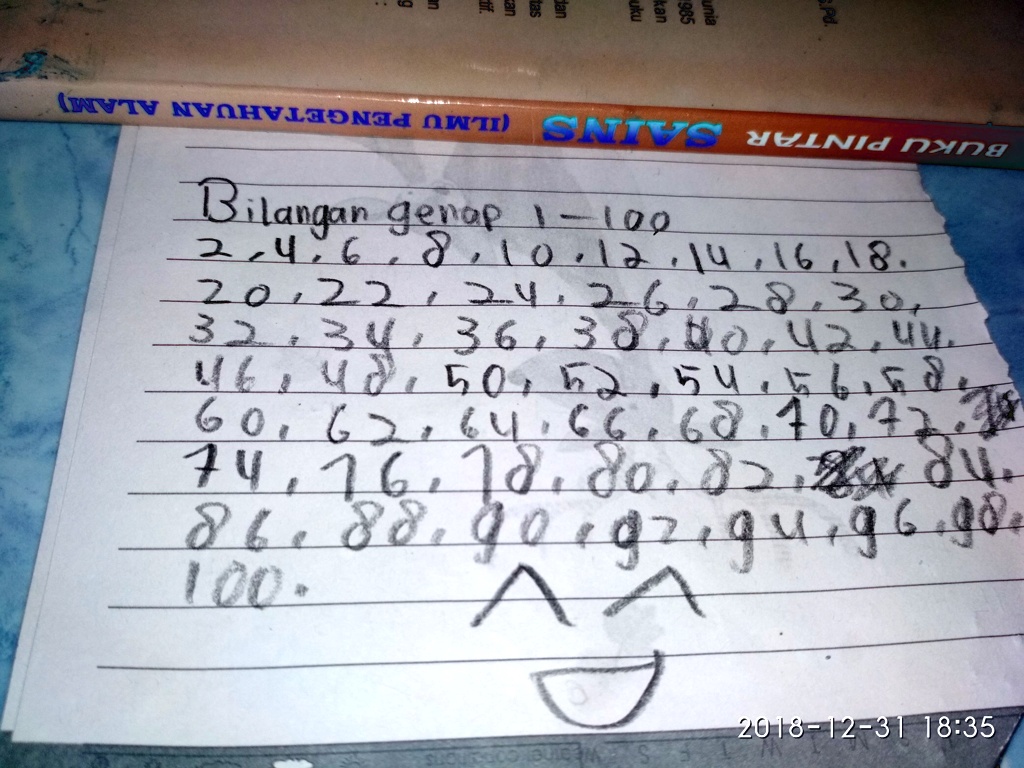 BUKU PINTAR SAINS (ILMU PENGETAHUAN ALAM)
Bilangan genap 1 - 100
2, 4, 6, 8, 10, 12, 14, 16, 18.
20, 22, 24, 26, 28, 30,
32, 34, 36, 38, 40, 42, 44.
46, 48, 50, 52, 54, 56, 58,
60, 62, 64, 66, 68, 70, 72,
74, 76, 78, 80, 82, 84.
86, 88, 90, 92, 94, 96, 98,
100.
2018-12-31 18:35